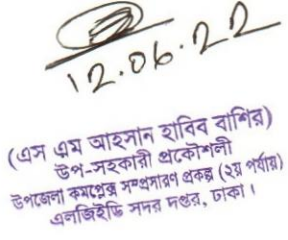 12.06.22
(এস এম আহসান হাবিব বাশির)
উপ-সহকারী প্রকৌশলী
উপজেলা কমপ্লেক্স সম্প্রসারণ প্রকল্প (২য় পর্যায়)
এলজিইডি সদর দপ্তর, ঢাকা।